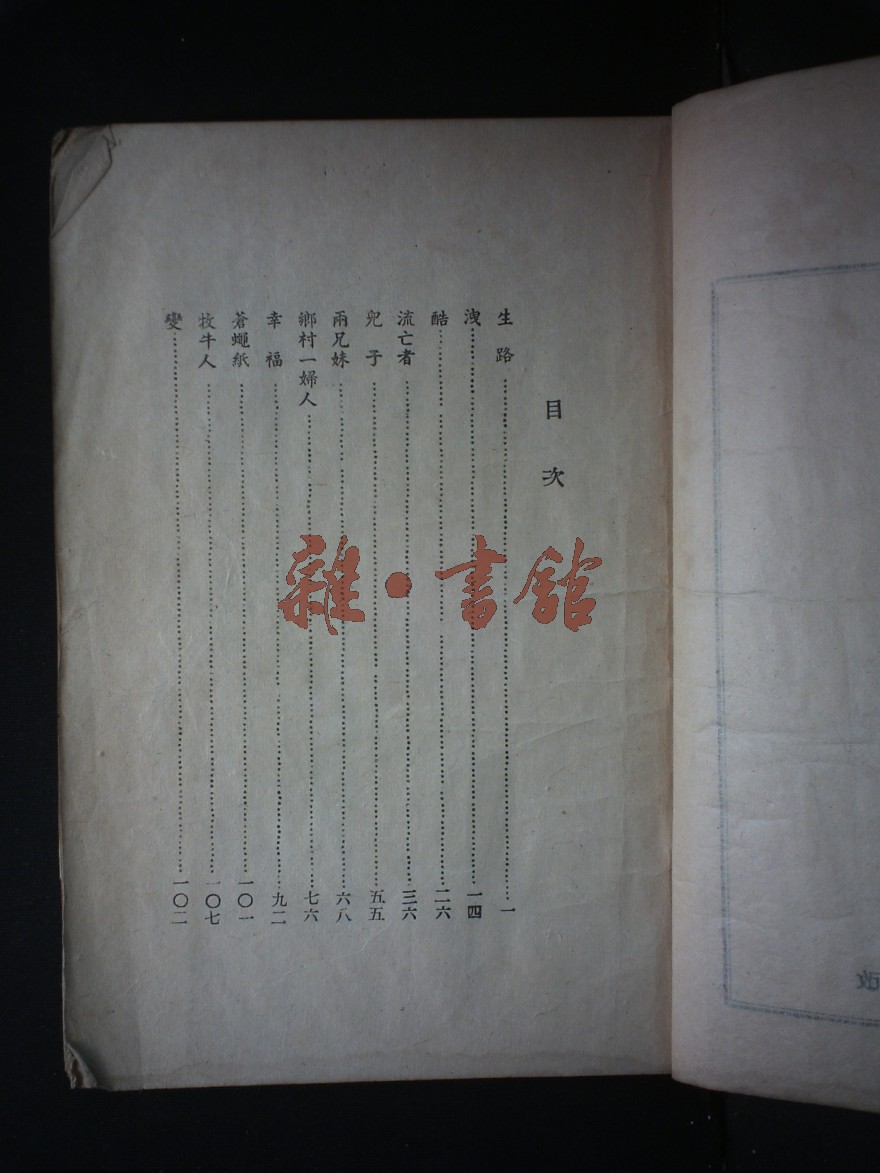 目次
生路……一
洩……一四
酷……二六
流亡者……三六
兒子……五五
兩兄妹……六八
鄉村一婦人……七六
幸福……九二
蒼蠅紙……一〇一
牧牛人……一〇七
變……一〇二
雜·書館
改